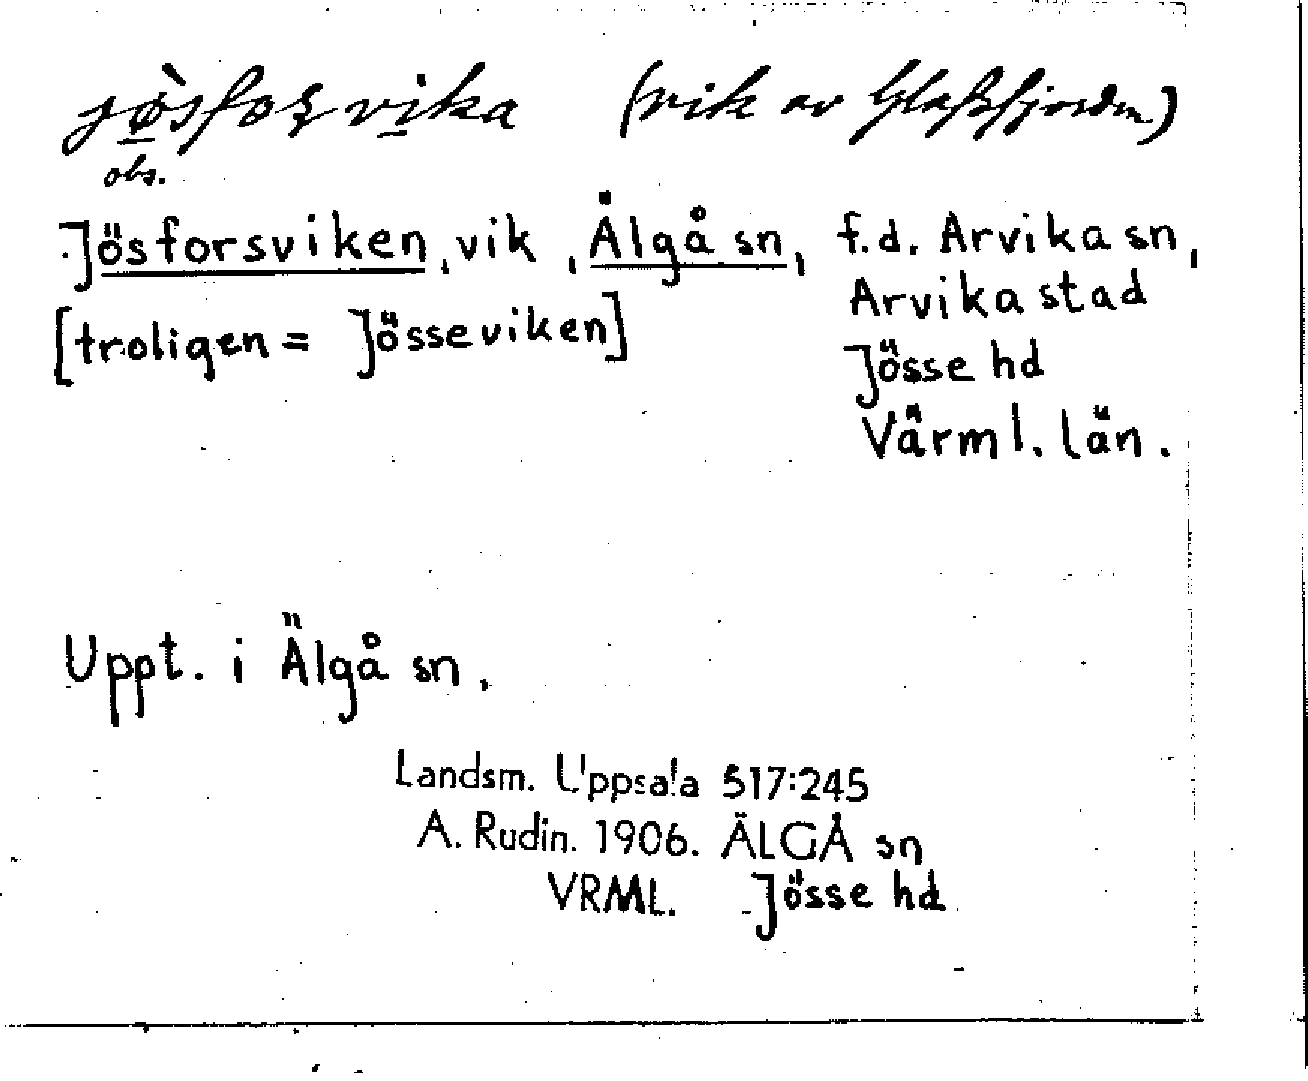 jø̀sfoʂvika (vik av Glafsfjorden)
obs.
Jösforsviken, vik, Älgå sn, f.d. Arvika sn,
Arvika stad
[troligen = Jösseviken]
Jösse hd
Värml. län.
Uppt. i Älgå sn.
Landsm. Uppsala 517:245
A. Rudin. 1906. ÄLGÅ sn
VRML. Jösse hd